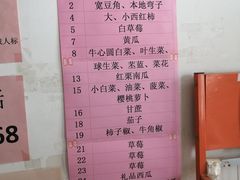 2 宽豆角、本地弯子
4 大、小西红柿
5 白草莓
7 黄瓜
8 牛心圆白菜、叶生菜、
球生菜、苤蓝、菜花
13 红栗南瓜
15 小白菜、油菜、菠菜、
樱桃萝卜
16 甘蔗
18 茄子
19 柿子椒、牛角椒
21 草莓
22 草莓
23 礼品西瓜
人标
68